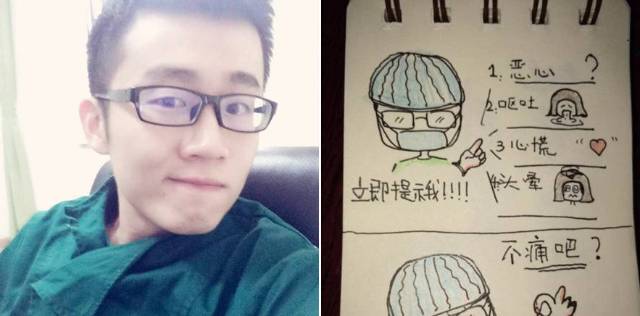 1. 恶心 ?
2. 呕吐
3 心慌 "❤"
4. 头晕
立即提示我!!!!
不痛吧?